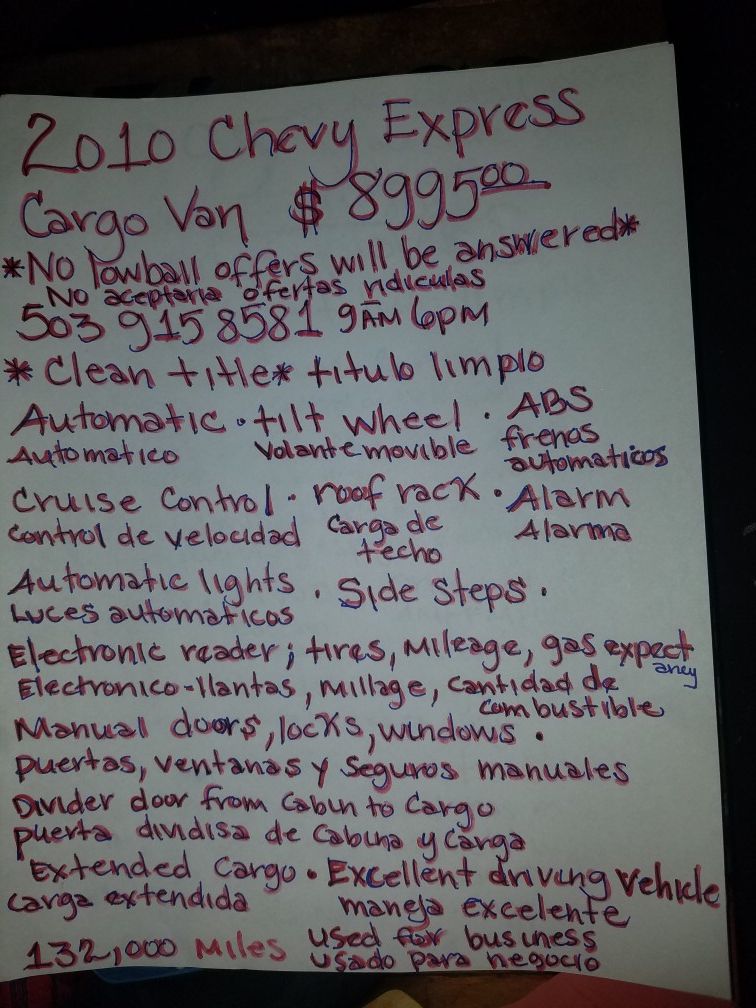 2010 Chevy Express
Cargo Van $ 8995.00
*No lowball offers will be answered*
No aceptaria ofertas ridiculas
503 915 8581 9AM 6PM
* Clean title* titulo limpio
Automatic · tilt wheel · ABS
Automatico volante movible frenos
automaticos
Cruise Control · roof rack · Alarm
Control de velocidad Carga de Alarma
techo
Automatic lights · Side Steps ·
Luces automaticos
Electronic reader; tires, mileage, gas expect
ancy
Electronico-llantas, millage, cantidad de
combustible
Manual doors, locks, windows ·
puertas, ventanas y seguros manuales
Divider door from Cabin to Cargo
puerta dividisa de Cabina y Carga
Extended Cargo · Excellent driving vehicle
carga extendida maneja excelente
132,000 Miles used for business
usado para negocio